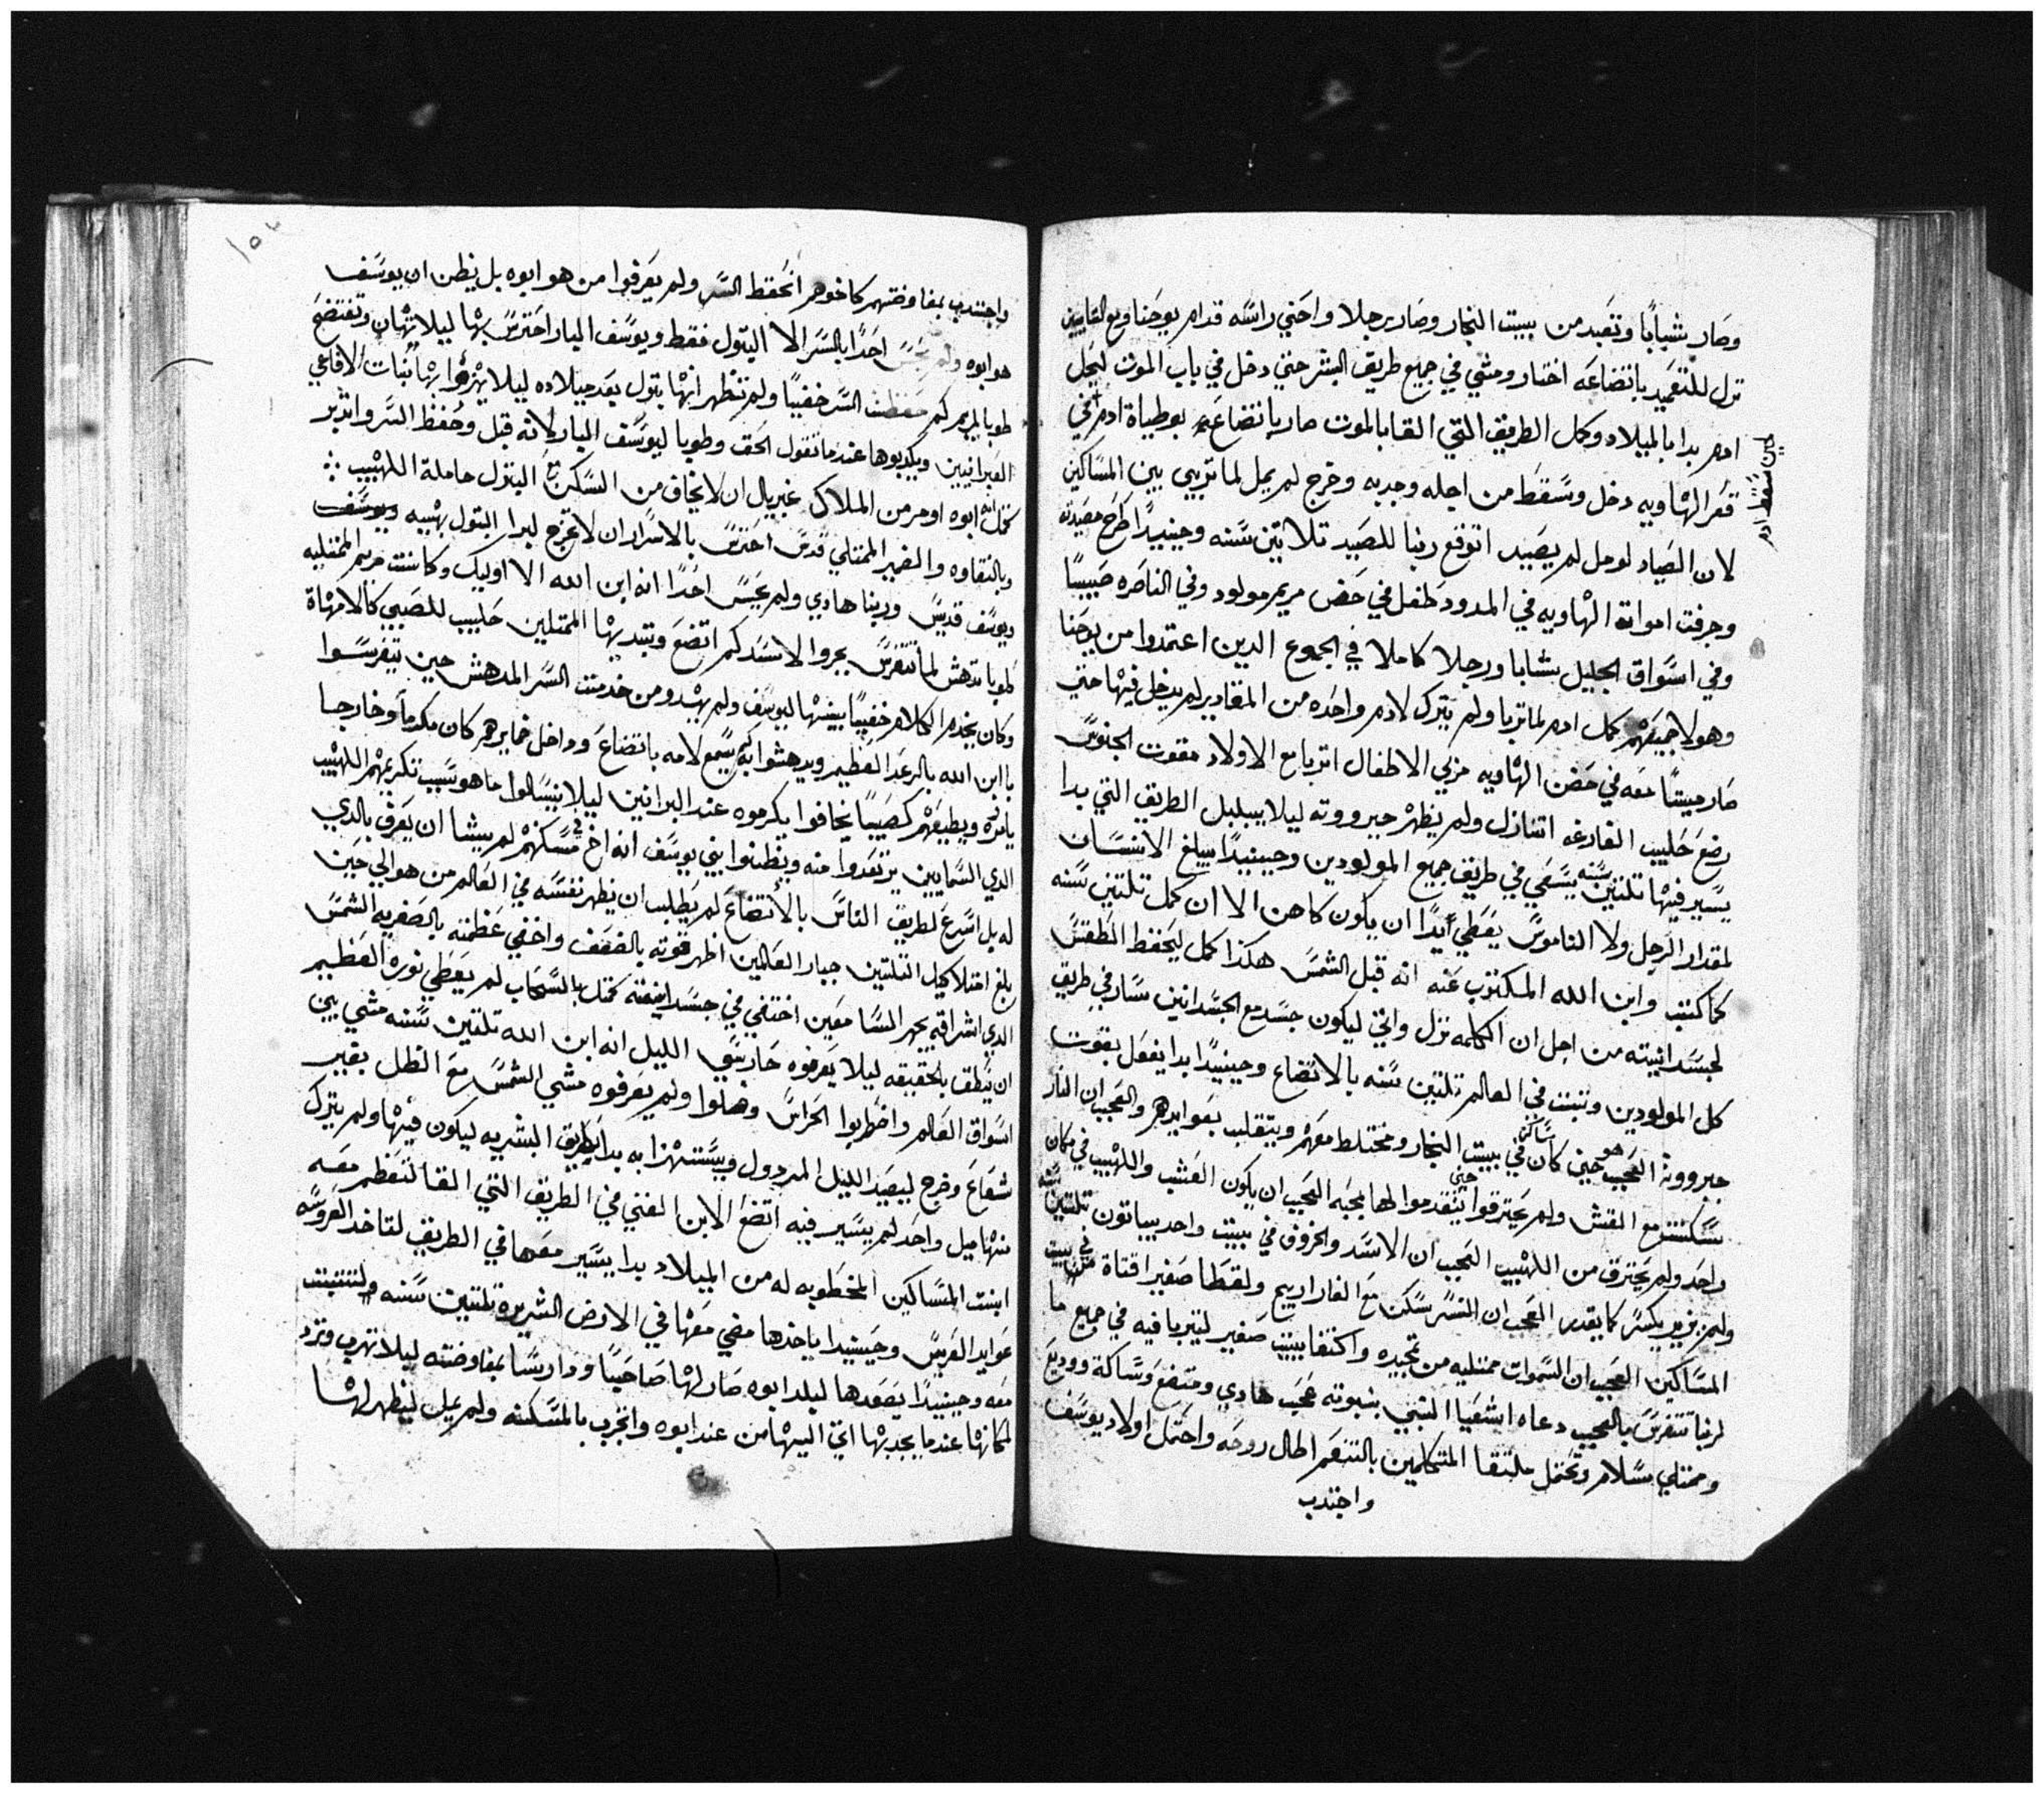 وصار شباباً وتعبد من بييت النجار وصار رجلا واحني راسه قدام يوحنا ومع التايبين
نزل للتعميد باتضاعه اختار ومشي في جميع طريق البشر حتي دخل في باب الموت ليحل
ادم بدا بالميلاد وكمل الطريق التي القا بالموت صار باتضاعه بوطياة ادم في
حين سقط ادم
قعر الهاويه دخل وسقط من اجله وجدبه وخرج لم يمل لما تربي بين المساكين
لان الصياد لو مل لم يصيد اتوقع ربنا للصيد تلاتين سنه وحينيدًا طرح مصيدته
وجرفت امواتة الهاويه في المدود طفل في حضن مريم مولود وفي الناصره صبييًا
وفي اسواق الجليل شابا ورجلا كاملا في الجموع الدين اعتمدوا من يوحنا
وهولا جميعهم كمل ادم لما تربا ولم يترك لادم واحده من المقادير لم يدخل فيها حتي
صار ميتًا معه في حضن الهاويه مربي الاطفال اتربا مع الاولاد مقوت الجنوس
رضع حليب الفارغه اتنازل ولم يظهر جبرووته ليلا يبلبل الطريق التي بدا
يسير فيها تلتين سنه يسعي في طريق جميع المولودين وحينيدًا يبلغ الانسان
لمقدار الرجل ولا الناموس يعطي ابدًا ان يكون كاهن الا ان كمل تلتين سنه
كما كتب وابن الله المكتوب عنه انه قبل الشمس هكذا كمل ليحفظ الطقس
لجسدانيته من اجل ان الكلمه نزل واتي ليكون جسد مع الجسدانين سار في طريق
كل المولودين وتبت في العالم تلتين سنه بالاتضاع وحينيدًا بدا يفعل بقوت
جبرووتة العجب هو حين كان ساكنًا في بييت النجار ومختلط معهم ويتقلب بعوايدهم والعجب ان النار
سكنت مع القش ولم يحترقوا حتي يتقدموا لها بمحبه العجب ان يكون العشب واللهيب في مكان
واحد ولم يحترق من اللهيب العجب ان الاسد والخروف في بييت واحد يباتون تلتين سنه
ولم يزير يكسر كما يقدر العجب ان النسر سكن مع الفاراريح ولقط صغير اقتاة في بييت
المساكين العجب ان السموات ممتليه من تمجيده واكتفا ببيت صغير ليتربا فيه في جميع ما
لربنا تتفرس بالعجب دعاه اشعيا النبي بنبوته عجب هادي ومتضع وساكة ووديع
وممتلي سلام وتحتمل ملتقا المتكلمين بالتنعم اطال روحه واحتمل اولاد يوسف
واجتدب
واجتدب بمفاوضتهم كاخوهم انحفظ السر ولم يعرفوا من هو ابوه بل يظن ان يوسف
هو ابوه ولم يحس احدًا بالسر الا البتول فقط ويوسف البار احترس بها ليلا تهان وتفتضح
طوبا لمريم كم حفظت السر خفييًا ولم تظهر انها بتول بعد ميلاده ليلا يهزوا بها بنات الافاعي
العبرانيين ويكدبوها عندما تقول الحق وطوبا ليوسف البار لانه قبل وحفظ السر واتدبر
كمل انه ابوه اومر من الملاك غبريال ان لا يخاف من السكن مع البتول حاملة اللهيب
وبالنقاوه والضمير الممتلي قدس احترس بالاسرار ان لا تخرج لبرا البتول بهييه ويوسف
ويوسف قديس وربنا هادي ولم يحس احدًا انه ابن الله الا اوليك وكانت مريم الممتليه
طوبا تدهش لما تتفرس بجروا الاسد كم اتضع وتبديها الممتلين حليب للصبي كالامهاة
وكان يخدم الكلام خفييًا بينها ليوسف ولم يهدو من خدمت السر المدهش حين يتفرسوا
باابن الله بالرعد العظيم ويدهشوا انه كم يسمع لامه باتضاع وداخل ضمايرهم كان مكدماً وخارجا
يامره ويطيعهم كصبيًا يخافوا يكرموه عند البرانين ليلا ينسالوا ما هو سبب تكريمهم اللهيب
الدي السمايين يرتعدوا منه ويظنوا بني يوسف انه اخ في مسكنهم لم يشا ان يعرف بالدي
له بل اسرع لطريق الناس بالاتضاع لم يطلب ان يظهر نفسه في العالم من هو الي حين
بلغ امتلا كيل التلتين جبار العالمين اظهر قوته بالضعف واخفي عظمته بالصغر يه الشمس
الدي اشراقه يبهر السامعين اختفي في جسدانيته كمتل بالسحاب لم يعطي نوره العظيم
ان ينطق بالحقيقه ليلا يعرفوه حارسي الليل انه ابن الله تلتين سنه مشي بين
اسواق العالم واضطربوا الحراس وضلوا ولم يعرفوه مشي الشمس مع الظل بغير
شعاع وخرج ليصيد الليل المردول ويستهزا به بدا بطريق البشريه ليكون فيها ولم يترك
منها ميل واحد لم يسير فيه اتضع الابن الغني في الطريق التي القا لتعظم معه
ابنت المساكين المخطوبه له من الميلاد بدا يسير معها في الطريق لتاخد العروسه
عوايد العريس وحينيدا ياخدها مضي معها في الارض الشريره تلتين سنه ولتتبت
معه وحينيدًا يصعدها لبلد ابوه صار لها صاحبًا ودارسًا بمفاوضته ليلا تهرب وترد
لمكانها عندما يجدبها اتي اليها من عند ابوه واتجرب بالمسكنه ولم يمل ليظهر لها